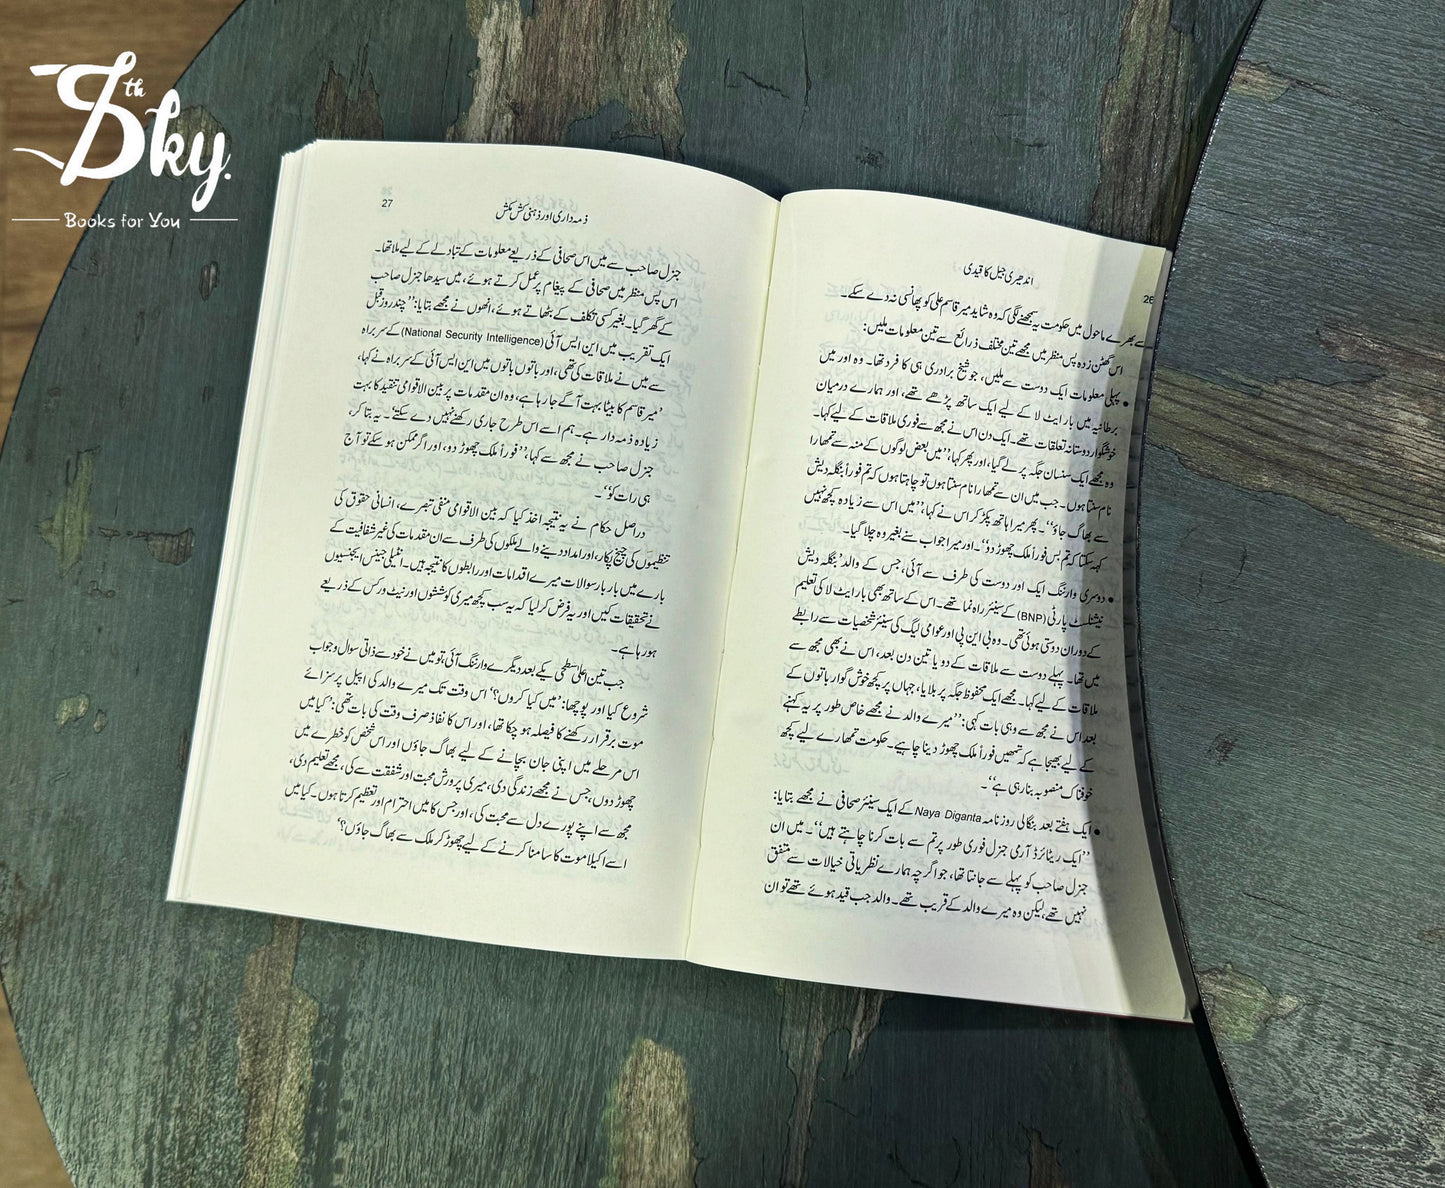 8th Sky.
Books for You
26
اندھیری جیل کا قیدی
سے بھرے ماحول میں حکومت یہ سمجھنے لگی کہ وہ شاید میر قاسم علی کو پھانسی نہ دے سکے۔
اس گھٹن زدہ پس منظر میں مجھے تین مختلف ذرائع سے تین معلومات ملیں:
● پہلی معلومات ایک دوست سے ملیں، جو شیخ برادری ہی کا فرد تھا۔ وہ اور میں
برطانیہ میں بار ایٹ لا کے لیے ایک ساتھ پڑھے تھے، اور ہمارے درمیان
خوشگوار دوستانہ تعلقات تھے۔ ایک دن اس نے مجھ سے فوری ملاقات کے لیے کہا۔
وہ مجھے ایک سنسان جگہ پر لے گیا، اور پھر کہا، ’’میں بعض لوگوں کے منہ سے تمھارا
نام سنتا ہوں۔ جب میں ان سے تمھارا نام سنتا ہوں تو چاہتا ہوں کہ تم فوراً بنگلہ دیش
سے بھاگ جاؤ‘‘۔ پھر میرا ہاتھ پکڑ کر اس نے کہا، ’’میں اس سے زیادہ کچھ نہیں
کہہ سکتا کہ تم بس فوراً ملک چھوڑ دو‘‘۔ اور میرا جواب سنے بغیر وہ چلا گیا۔
● دوسری وارننگ ایک اور دوست کی طرف سے آئی، جس کے والد ’بنگلہ دیش
نیشنلسٹ پارٹی (BNP) کے سینئر راہ نما تھے۔ اس کے ساتھ بھی بار ایٹ لا کی تعلیم
کے دوران دوستی ہوئی تھی۔ وہ بی این پی اور عوامی لیگ کی سینئر شخصیات سے رابطے
میں تھا۔ پہلے دوست سے ملاقات کے دو یا تین دن بعد، اس نے بھی مجھ سے
ملاقات کے لیے کہا۔ مجھے ایک محفوظ جگہ پر بلایا، جہاں پر کچھ خوش گوار باتوں کے
بعد اس نے مجھ سے وہی بات کہی: ’’میرے والد نے مجھے خاص طور پر یہ کہنے
کے لیے بھیجا ہے کہ تمھیں فوراً ملک چھوڑ دینا چاہیے۔ حکومت تمھارے لیے کچھ
خوفناک منصوبہ بنا رہی ہے‘‘۔
● ایک ہفتے بعد بنگالی روزنامہ Naya Diganta کے ایک سینئر صحافی نے مجھے بتایا:
’’ایک ریٹائرڈ آرمی جنرل فوری طور پر تم سے بات کرنا چاہتے ہیں‘‘۔ میں ان
جنرل صاحب کو پہلے سے جانتا تھا، جو اگرچہ ہمارے نظریاتی خیالات سے متفق
نہیں تھے، لیکن وہ میرے والد کے قریب تھے۔ والد جب قید ہوئے تھے تو ان
27
ذمہ داری اور ذہنی کش مکش
جنرل صاحب سے میں اس صحافی کے ذریعے معلومات کے تبادلے کے لیے ملا تھا۔
اس پس منظر میں صحافی کے پیغام پر عمل کرتے ہوئے، میں سیدھا جنرل صاحب
کے گھر گیا۔ بغیر کسی تکلف کے بٹھاتے ہوئے، انھوں نے مجھے بتایا: ’’چند روز قبل
ایک تقریب میں این ایس آئی (National Security Intelligence) کے سربراہ
سے میں نے ملاقات کی تھی، اور باتوں باتوں میں این ایس آئی کے سربراہ نے کہا،
’میر قاسم کا بیٹا بہت آگے جا رہا ہے، وہ ان مقدمات پر بین الاقوامی تنقید کا بہت
زیادہ ذمہ دار ہے۔ ہم اسے اس طرح جاری رکھنے نہیں دے سکتے‘۔ یہ بتا کر،
جنرل صاحب نے مجھ سے کہا، ’’فوراً ملک چھوڑ دو، اور اگر ممکن ہو سکے تو آج
ہی رات کو‘‘۔
دراصل حکام نے یہ نتیجہ اخذ کیا کہ بین الاقوامی منفی تبصرے، انسانی حقوق کی
تنظیموں کی چیخ پکار، اور امداد دینے والے ملکوں کی طرف سے ان مقدمات کی غیر شفافیت کے
بارے میں بار بار سوالات میرے اقدامات اور رابطوں کا نتیجہ ہیں۔ انٹیلی جینس ایجنسیوں
نے تحقیقات کیں اور یہ فرض کر لیا کہ یہ سب کچھ میری کوششوں اور نیٹ ورکس کے ذریعے
ہو رہا ہے۔
جب تین اعلیٰ سطحی یکے بعد دیگرے وارننگ آئی، تو میں نے خود سے ذاتی سوال و جواب
شروع کیا اور پوچھا: ’میں کیا کروں؟‘ اس وقت تک میرے والد کی اپیل پر سزائے
موت برقرار رکھنے کا فیصلہ ہو چکا تھا، اور اس کا نفاذ صرف وقت کی بات تھی: ’کیا میں
اس مرحلے میں اپنی جان بچانے کے لیے بھاگ جاؤں اور اس شخص کو خطرے میں
چھوڑ دوں، جس نے مجھے زندگی دی، میری پرورش محبت اور شفقت سے کی، مجھے تعلیم دی،
مجھ سے اپنے پورے دل سے محبت کی، اور جس کا میں احترام اور تعظیم کرتا ہوں۔ کیا میں
اسے اکیلا موت کا سامنا کرنے کے لیے چھوڑ کر ملک سے بھاگ جاؤں؟‘